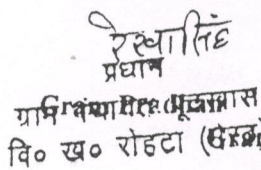 रेखा सिंह
प्रधान
ग्राम पंचायत
वि० ख० रोहटा